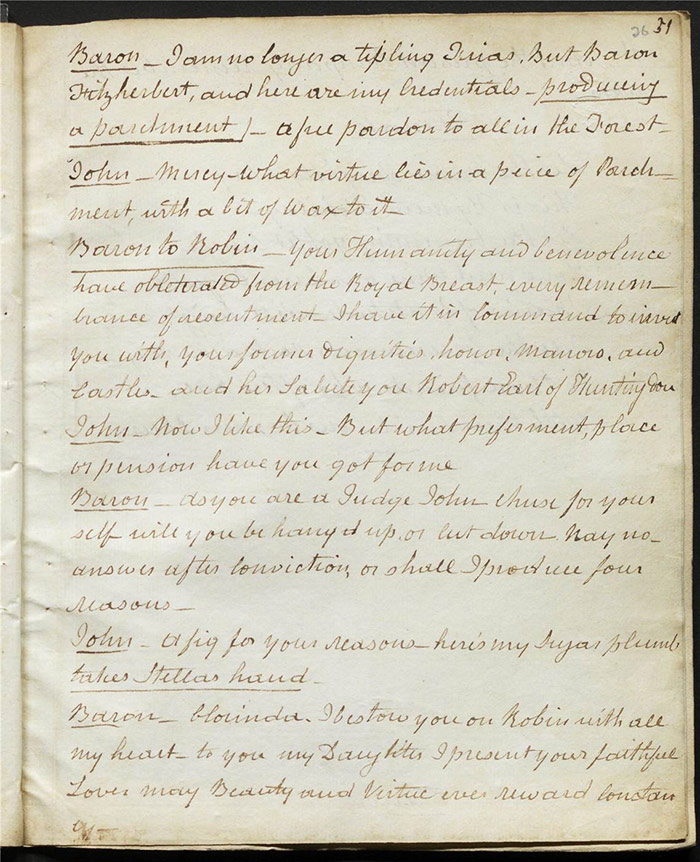 26 51
Baron – I am no longer a tipling Friar, But Baron
Fitzherbert, and here are my Credentials – producing
a parchment) – a free pardon to all in the Forest –
John – Mercy – what virtue lies in a peice of Parch–
ment, with a bit of wax to it –
Baron to Robin – your Humanity and benevolence
have obliterated from the Royal Breast, every remem–
brance of resentment – I have it in Command to invest
you with, your former Dignities, honor, Manors, and
Castles – and his Salute you Robert Earl of Huntingdon
John – Now I like this – But what preferment, place
or pension have you got for me
Baron – as you are a Judge John – chuse for your
self will you be hang'd up, or cut down Nay no –
answer after Conviction, or shall I produce four
reasons –
John – a fig for your reasons – here's my Sugar plumb
takes Stellas hand –
Baron – Clorinda. I bestow you on Robin with all
my heart – to you my Daughter I present your faithful
Lover may Beauty and Virtue ever reward Constan
cy –